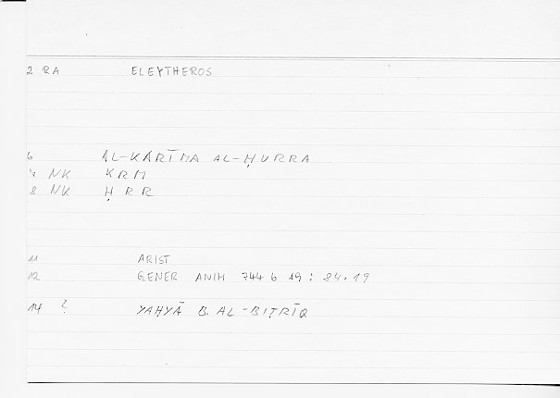 2 RA ELEYTHEROS
6 AL-KARĪMA AL-ḤURRA
7 NK KRM
8 NK ḤRR
11 ARIST
12 GENER ANIM 744 b 19 : 84.19
14 ? YAḤYĀ B. AL-BIṬRĪQ